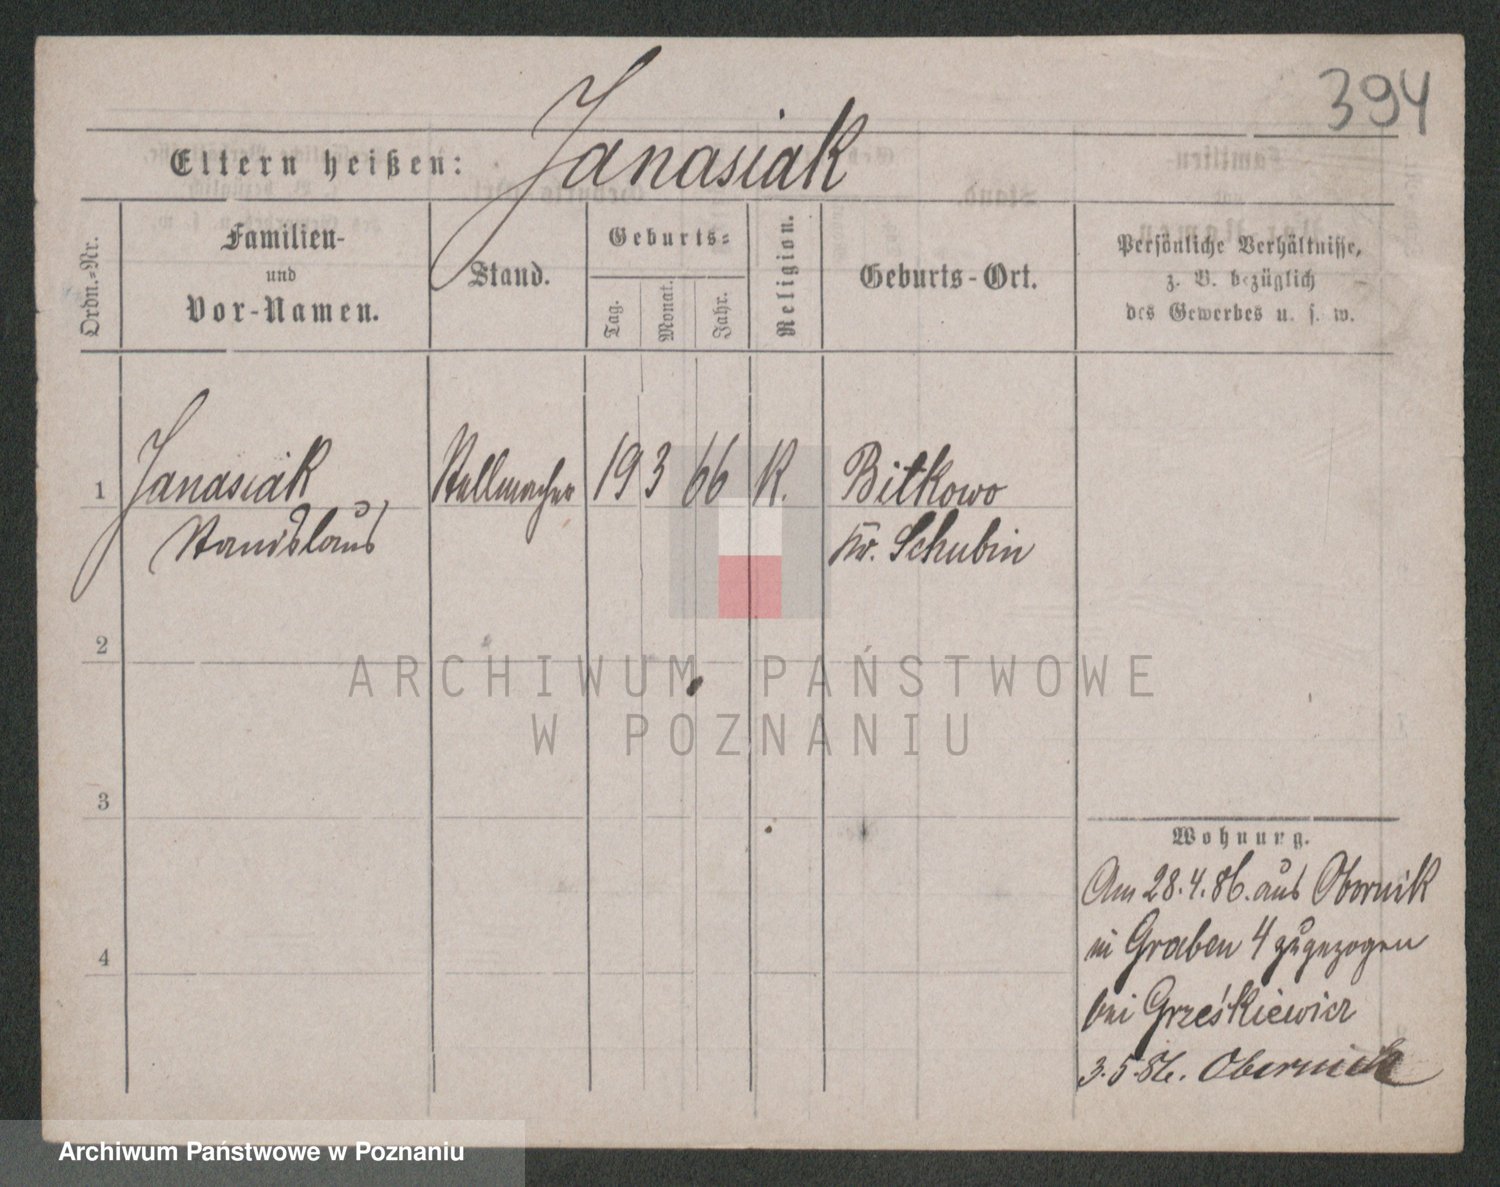 394
Eltern heißen: Janasiak
Ordn.-Nr.
Familien-
und
Vor-Namen.
Stand.
Geburts-
Tag.
Monat.
Jahr.
Religion.
Geburts-Ort.
Persönliche Verhältnisse,
z. B. bezüglich
des Gewerbes u. s. w.
1 Janasiak Stellmacher 19 3 66 K. Bitkowo
Stanislaus Kr. Schubin
2
3
4
Wohnung.
Am 28.4.86. aus Obornik
in Graben 4 zugezogen
bei Grześkiewicz
3.5.86. Obernick
ARCHIWUM PAŃSTWOWE
W POZNANIU
Archiwum Państwowe w Poznaniu